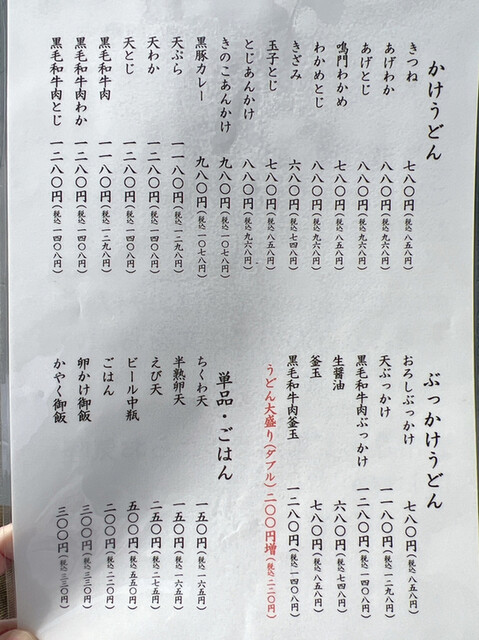 かけうどん
きつね 七八〇円(税込 八五八円)
あげわか 八八〇円(税込 九六八円)
あげとじ 八八〇円(税込 九六八円)
鳴門わかめ 七八〇円(税込 八五八円)
わかめとじ 八八〇円(税込 九六八円)
きざみ 六八〇円(税込 七四八円)
玉子とじ 七八〇円(税込 八五八円)
とじあんかけ 八八〇円(税込 九六八円)
きのこあんかけ 九八〇円(税込 一〇七八円)
黒豚カレー 九八〇円(税込 一〇七八円)
天ぷら 一一八〇円(税込 一二九八円)
天わか 一二八〇円(税込 一四〇八円)
天とじ 一二八〇円(税込 一四〇八円)
黒毛和牛肉 一一八〇円(税込 一二九八円)
黒毛和牛肉わか 一二八〇円(税込 一四〇八円)
黒毛和牛肉とじ 一二八〇円(税込 一四〇八円)
ぶっかけうどん
おろしぶっかけ 七八〇円(税込 八五八円)
天ぶっかけ 一一八〇円(税込 一二九八円)
黒毛和牛肉ぶっかけ 一二八〇円(税込 一四〇八円)
生醤油 六八〇円(税込 七四八円)
釜玉 七八〇円(税込 八五八円)
黒毛和牛肉釜玉 一二八〇円(税込 一四〇八円)
うどん大盛り(ダブル)二〇〇円増(税込 二二〇円)
単品・ごはん
ちくわ天 一五〇円(税込 一六五円)
半熟卵天 一五〇円(税込 一六五円)
えび天 二五〇円(税込 二七五円)
ビール中瓶 五〇〇円(税込 五五〇円)
ごはん 二〇〇円(税込 二二〇円)
卵かけ御飯 三〇〇円(税込 三三〇円)
かやく御飯 三〇〇円(税込 三三〇円)